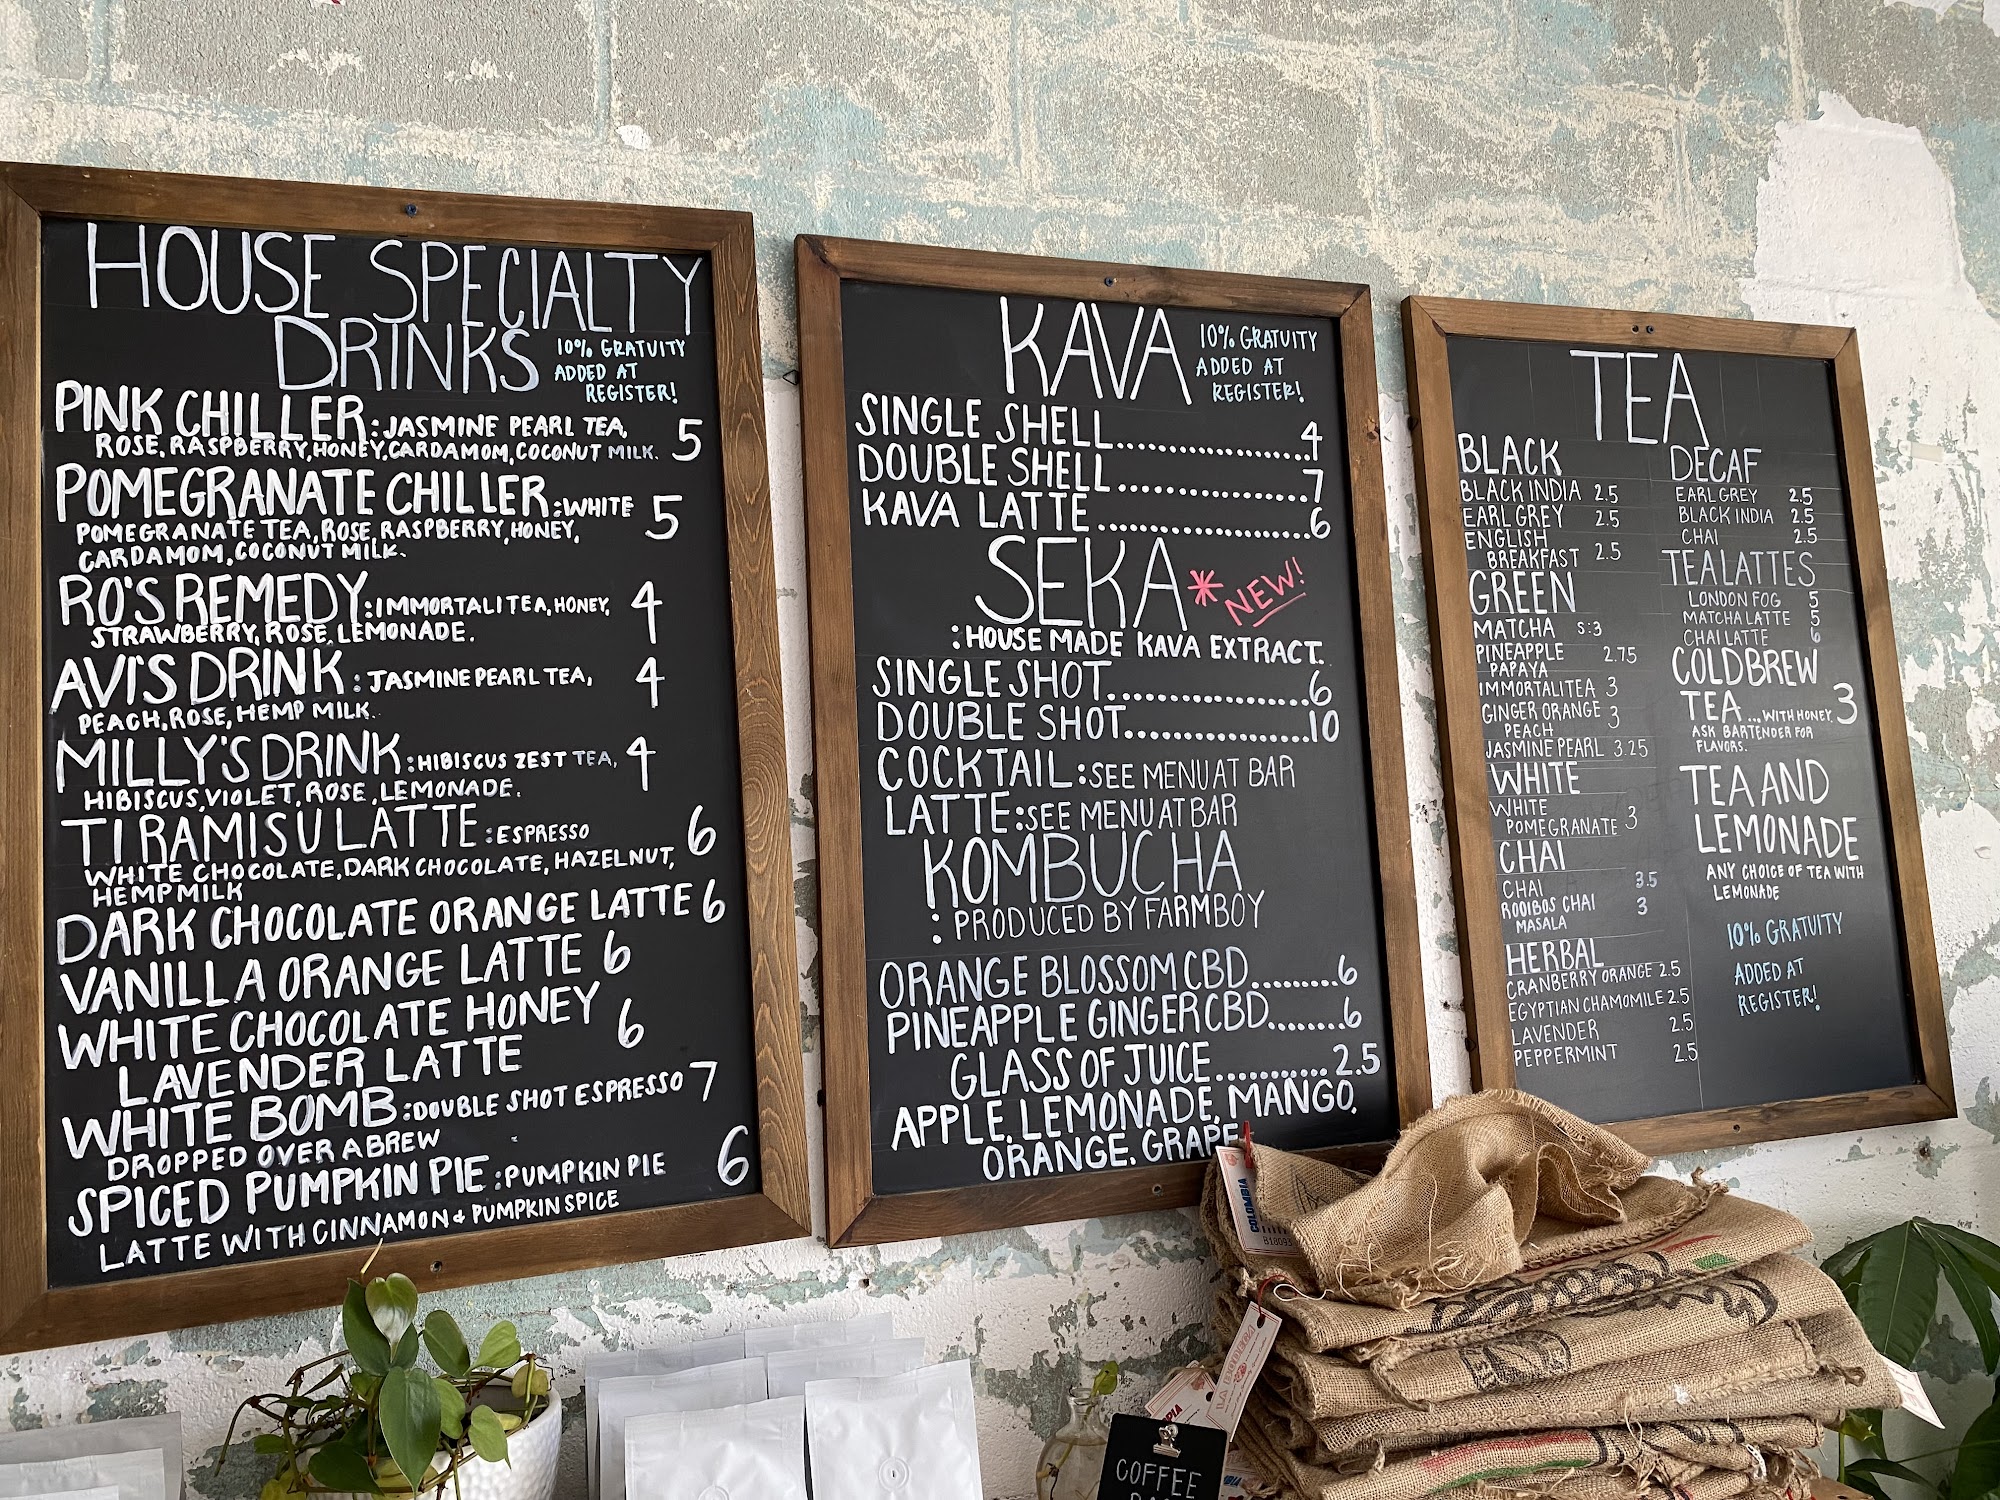 HOUSE SPECIALTY
DRINKS
10% GRATUITY
ADDED AT
REGISTER!
PINK CHILLER: JASMINE PEARL TEA,
ROSE, RASPBERRY, HONEY, CARDAMOM, COCONUT MILK. 5
POMEGRANATE CHILLER: WHITE 5
POMEGRANATE TEA, ROSE, RASPBERRY, HONEY,
CARDAMOM, COCONUT MILK.
RO'S REMEDY: IMMORTALITEA, HONEY, 4
STRAWBERRY, ROSE, LEMONADE.
AVI'S DRINK: JASMINE PEARL TEA, 4
PEACH, ROSE, HEMP MILK.
MILLY'S DRINK: HIBISCUS ZEST TEA, 4
HIBISCUS, VIOLET, ROSE, LEMONADE.
TIRAMISU LATTE: ESPRESSO 6
WHITE CHOCOLATE, DARK CHOCOLATE, HAZELNUT,
HEMP MILK
DARK CHOCOLATE ORANGE LATTE 6
VANILLA ORANGE LATTE 6
WHITE CHOCOLATE HONEY 6
LAVENDER LATTE
WHITE BOMB: DOUBLE SHOT ESPRESSO 7
DROPPED OVER A BREW
SPICED PUMPKIN PIE: PUMPKIN PIE 6
LATTE WITH CINNAMON & PUMPKIN SPICE
KAVA
10% GRATUITY
ADDED AT
REGISTER!
SINGLE SHELL....................4
DOUBLE SHELL..................7
KAVA LATTE....................6
SEKA * NEW!
: HOUSE MADE KAVA EXTRACT.
SINGLE SHOT..................6
DOUBLE SHOT.................10
COCKTAIL: SEE MENU AT BAR
LATTE: SEE MENU AT BAR
KOMBUCHA
: PRODUCED BY FARMBOY
ORANGE BLOSSOM CBD.........6
PINEAPPLE GINGER CBD........6
GLASS OF JUICE...........2.5
APPLE. LEMONADE, MANGO,
ORANGE. GRAPE
TEA
BLACK
BLACK INDIA 2.5
EARL GREY 2.5
ENGLISH
BREAKFAST 2.5
GREEN
MATCHA S:3
PINEAPPLE 2.75
PAPAYA
IMMORTALITEA 3
GINGER ORANGE 3
PEACH
JASMINE PEARL 3.25
WHITE
WHITE
POMEGRANATE 3
CHAI
CHAI 3.5
ROOIBOS CHAI 3
MASALA
HERBAL
CRANBERRY ORANGE 2.5
EGYPTIAN CHAMOMILE 2.5
LAVENDER 2.5
PEPPERMINT 2.5
DECAF
EARL GREY 2.5
BLACK INDIA 2.5
CHAI 2.5
TEA LATTES
LONDON FOG 5
MATCHA LATTE 5
CHAI LATTE 6
COLD BREW
TEA...WITH HONEY. 3
ASK BARTENDER FOR
FLAVORS.
TEA AND
LEMONADE
ANY CHOICE OF TEA WITH
LEMONADE
10% GRATUITY
ADDED AT
REGISTER!
COLOMBIA
COFFEE